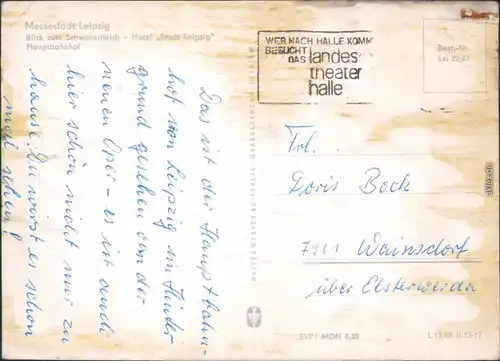 Messestadt Leipzig
Blick zum Schwanenteich - Hotel „Stadt Leipzig"
Hauptbahnhof
WER NACH HALLE KOMMT
BESUCHT
DAS landes
theater
halle
Best.-Nr.
Lei 22/67
Das ist der Hauptbahn-
hof von Leipzig im Hinter
grund gesehen von der
neuen Oper - es ist auch
hier schön nicht nur zu
hause. Du wirst es schon
mal sehen!
Frl.
Doris Bock
7901 Wainsdorf
über Elsterwerda
EVP: MDN 0,20